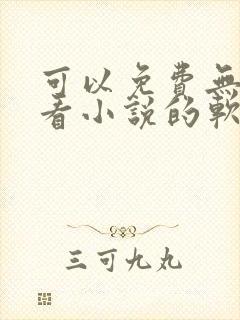 可以免費無
看小說的軟
三可九丸